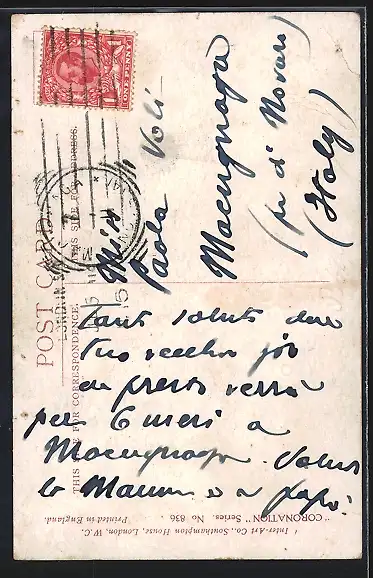 POST CARD.
THIS SIDE FOR CORRESPONDENCE.
THIS SIDE FOR ADDRESS.
ONE PENNY
Miss
Paola Voli
Macugnaga
(pr d' Novara)
(Italy)
Tanti saluti
Tuo vecchio
presto verrà
per 6 mesi a
Macugnaga. Saluta
la Mamma e papà!
"CORONATION" Series. No 836.
Inter-Art Co., Southampton House, London, W.C.
Printed in England.